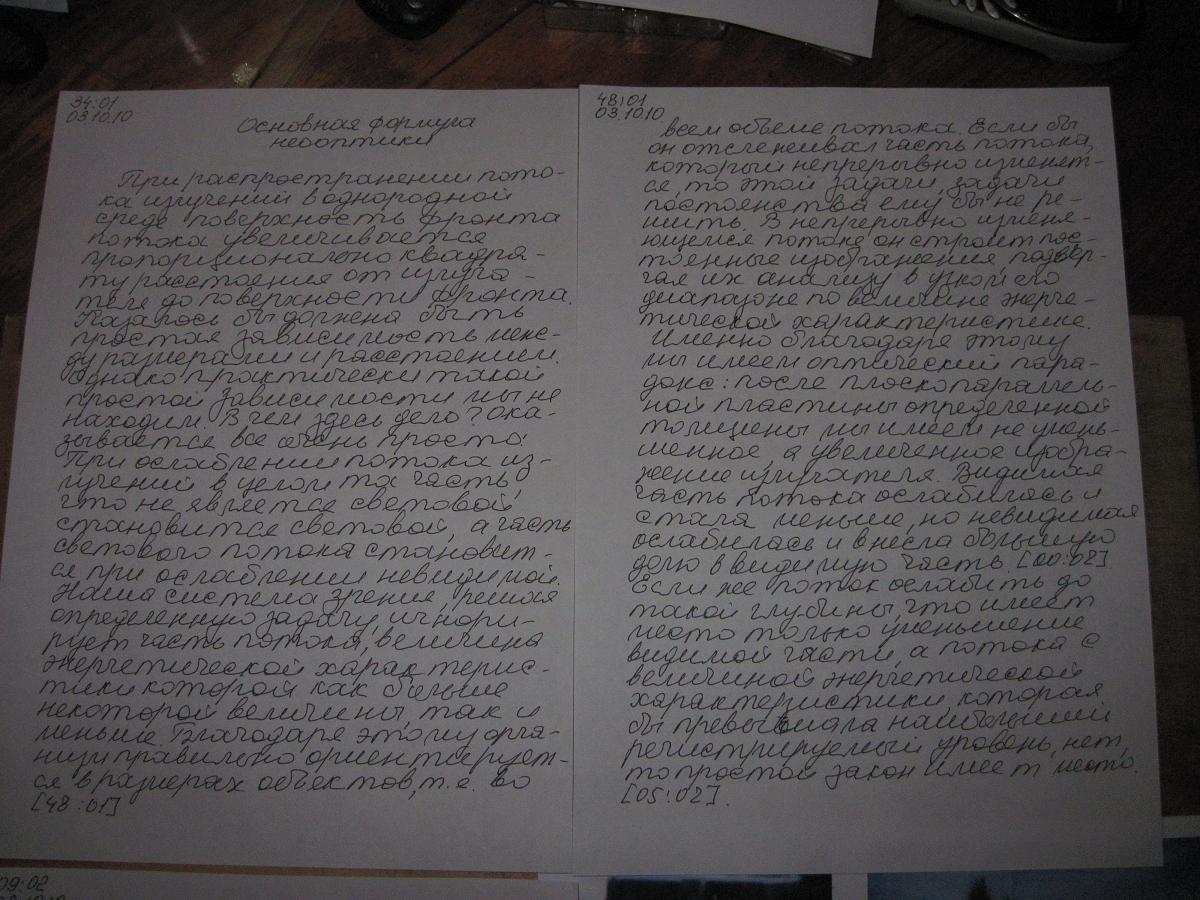 34:01
03.10.10
Основная формула
неооптики
При распространении пото-
ка излучений в однородной
среде поверхность фронта
потока увеличивается
пропорционально квадра-
ту расстояния от излуча-
теля до поверхности фронта.
Казалось бы должена быть
простая зависимость меж-
ду размерами и расстоянием.
Однако практически такой
простой зависимости мы не
находим. В чем здесь дело? Ока-
зывается все очень просто:
При ослаблении потока из-
лучений в целом та часть,
что не является световой
становится световой, а часть
светового потока становит-
ся при ослаблении невидимой.
Наша система зрения, решая
определенную задачу, игнори-
рует часть потока, величина
энергетической характерис-
тики которой как больше
некоторой величины, так и
меньше. Благодаря этому орга-
низм правильно ориентирует-
ся в размерах объектов, т.е. во
[48:01]
48:01
03.10.10
всем объеме потока. Если бы
он отслеживал часть потока,
который непрерывно изменяет-
ся, то этой задачи, задачи
постоянства ему бы не ре-
шить. В непрерывно изменя-
ющемся потоке он строит пос-
тоянные изображения, подвер-
гая их анализу в узком его
диапазоне по величине энерге-
тической характеристике.
Именно благодаря этому
мы имеем оптический пара-
докс: после плоскопараллель-
ной пластины определенной
толщины мы имеем не умень-
шенное, а увеличенное изобра-
жение излучателя. Видимая
часть потока ослабилась и
стала меньше, но невидимая
ослабилась и внесла большую
долю в видимую часть [00:02].
Если же поток ослабить до
такой глубины, что имеет
место только уменьшение
видимой части, а потока с
величиной энергетической
характеристики, которая
бы превышала наибольший
регистрируемый уровень, нет,
то простой закон имеет место.
[05:02].
09:02